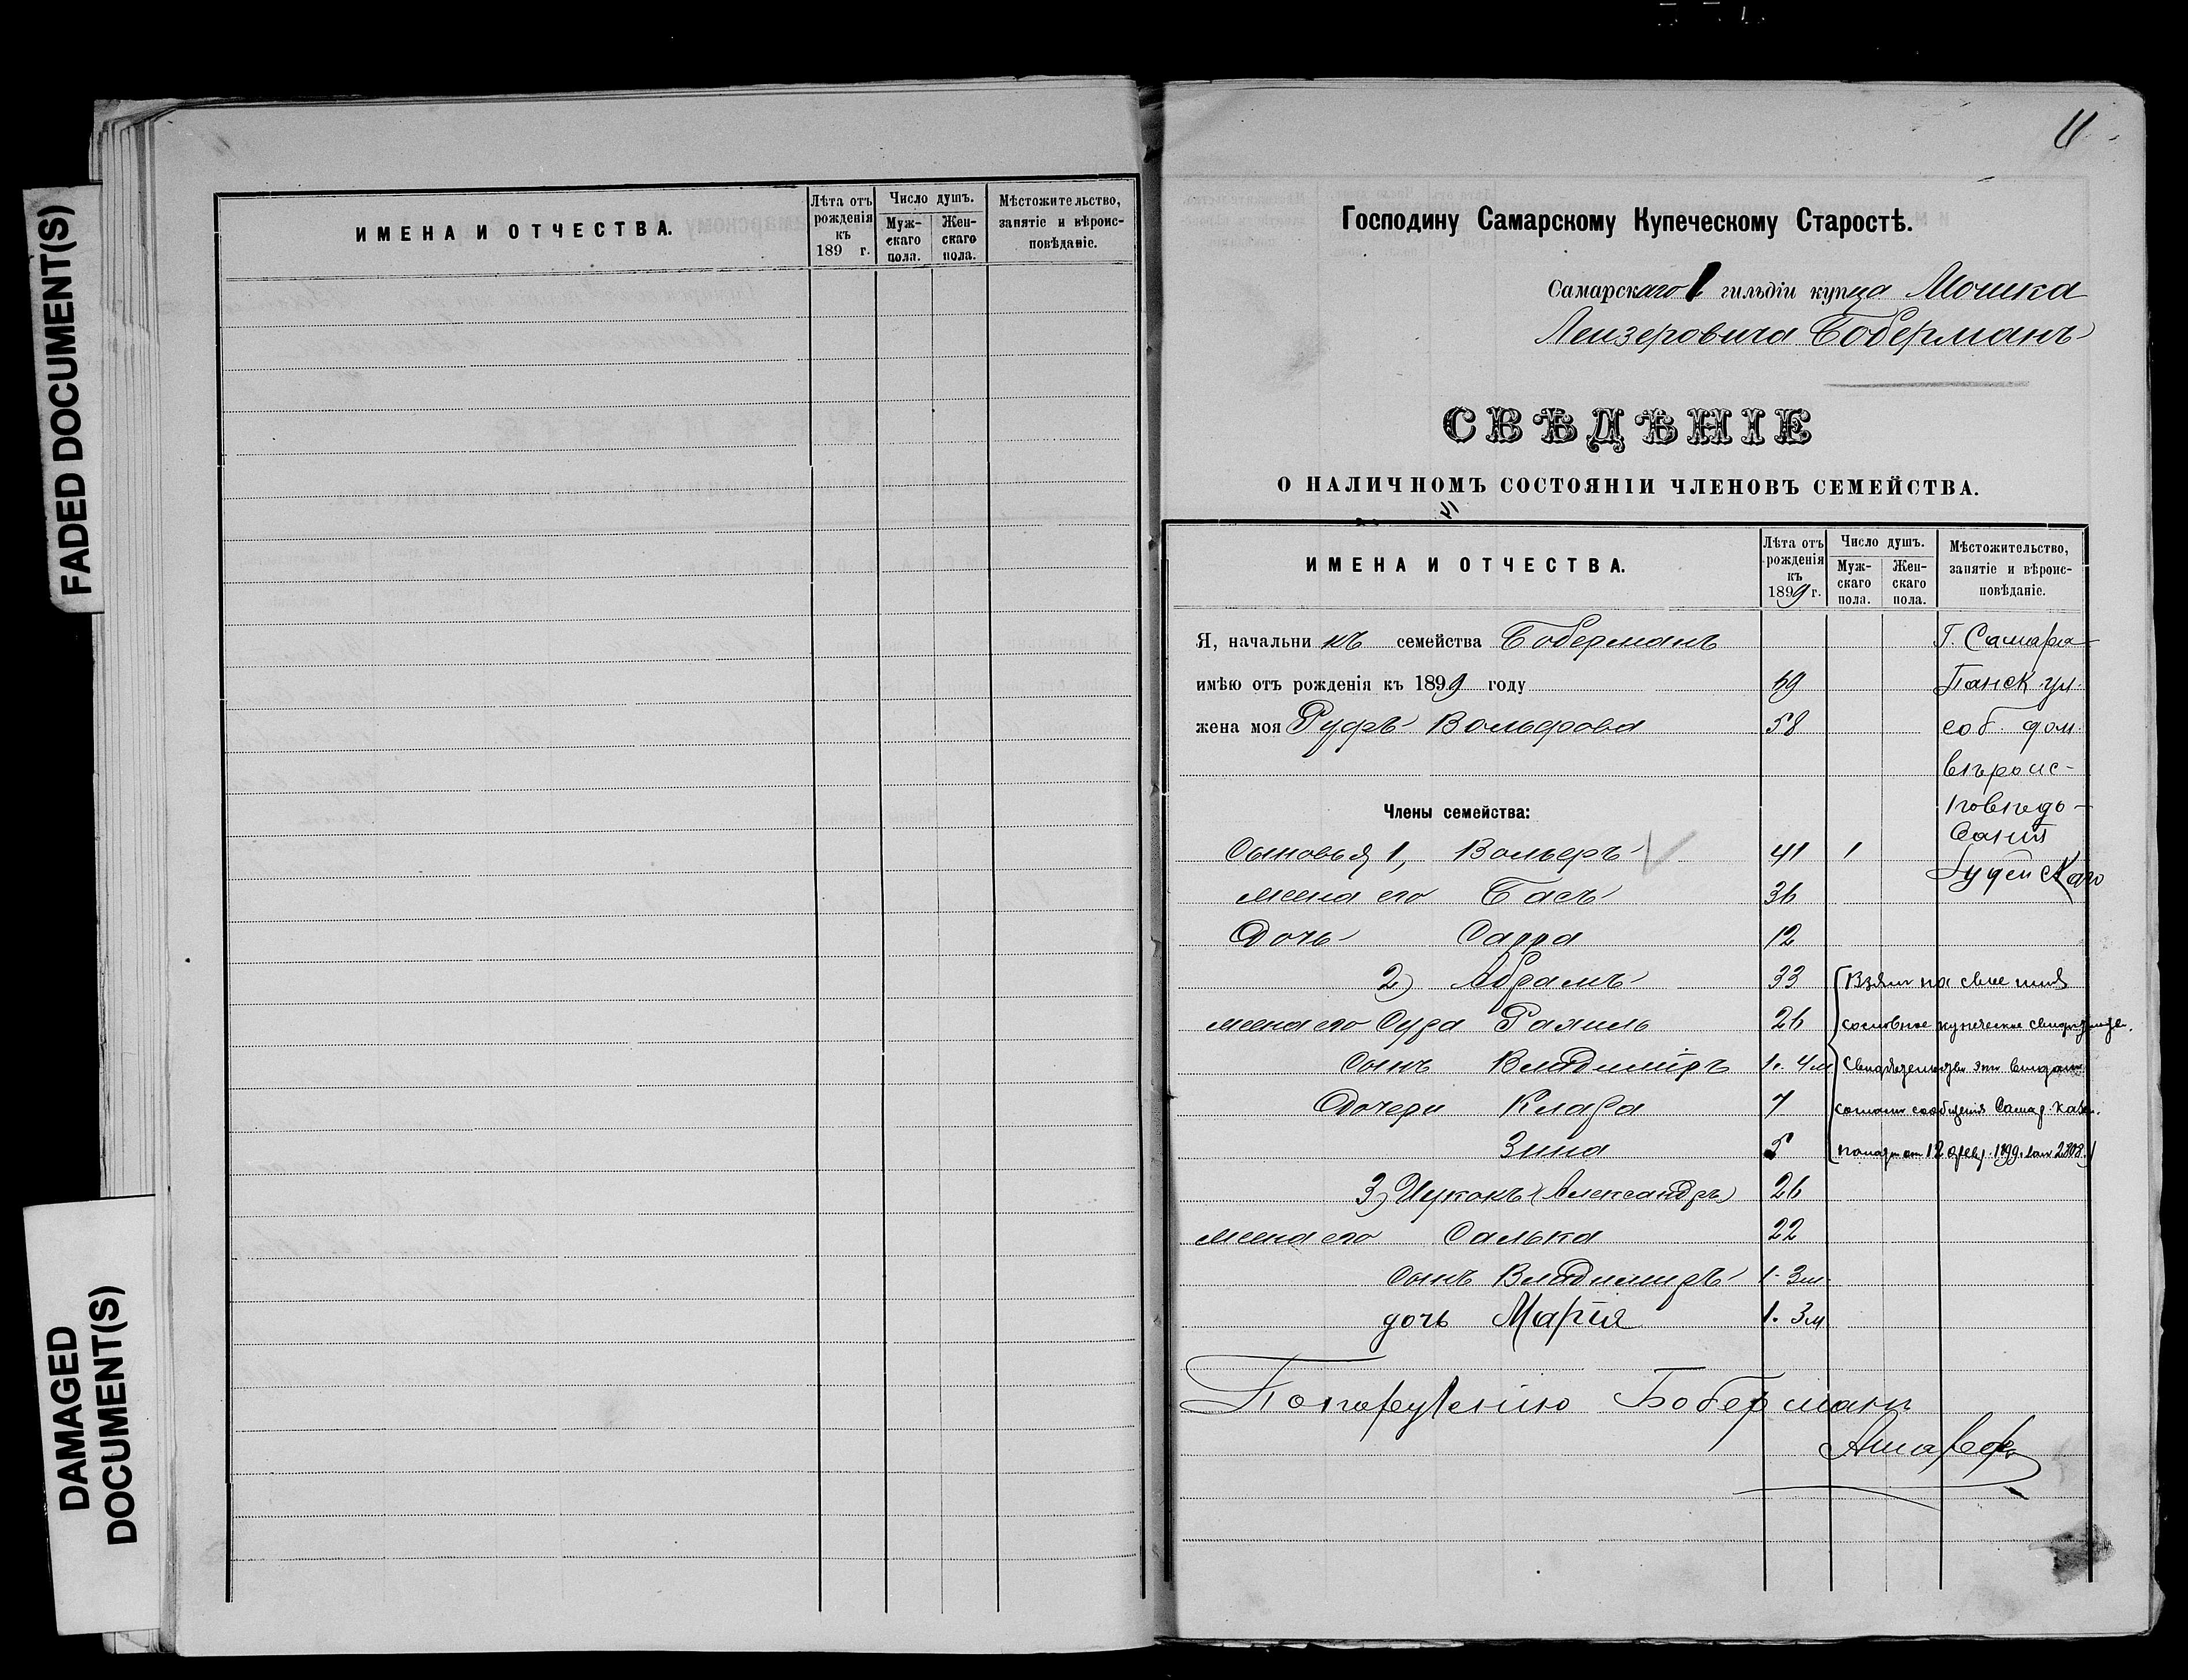 FADED DOCUMENT(S)
DAMAGED
DOCUMENT(S)
ИМЕНА И ОТЧЕСТВА.
Лѣта отъ рожденія къ 189 г.
Число душъ.
Муж-скаго пола.
Жен-скаго пола.
Мѣстожительство, занятіе и вѣроис-повѣданіе.
11
Господину Самарскому Купеческому Старостѣ.
Самарскаго 1 гильдіи купца Мошка
Лейзеровича Боберманъ
СВѢДѢНІЕ
О НАЛИЧНОМЪ СОСТОЯНІИ ЧЛЕНОВЪ СЕМЕЙСТВА.
ИМЕНА И ОТЧЕСТВА.
Лѣта отъ рожденія къ 1899 г.
Число душъ.
Муж-скаго пола.
Жен-скаго пола.
Мѣстожительство, занятіе и вѣроис-повѣданіе.
Я, начальникъ семейства Боберманъ Г. Самара
имѣю отъ рожденія къ 1899 году 69 Панск ул.
жена моя Руфь Вольфова 58 соб. дом.
вѣроис-
Члены семейства: повѣдо-
ванія
Сыновья 1, Вольеръ 41 1 Іудейскаго
жена его Бася 36
Дочь Сарра 12
2) Абрамъ 33 Взялъ на свое имя
жена его Сура Рахиль 26 сословное купеческое свидѣтел.
Сынъ Владиміръ 1. 4 м
Дочери Клара 7
Зина 5
3) Ицхокъ (Александръ) 26
жена его Салька 22
сынъ Владимиръ 1. 3 м.
дочь Марія 1. 3 м
По порученію Боберманъ